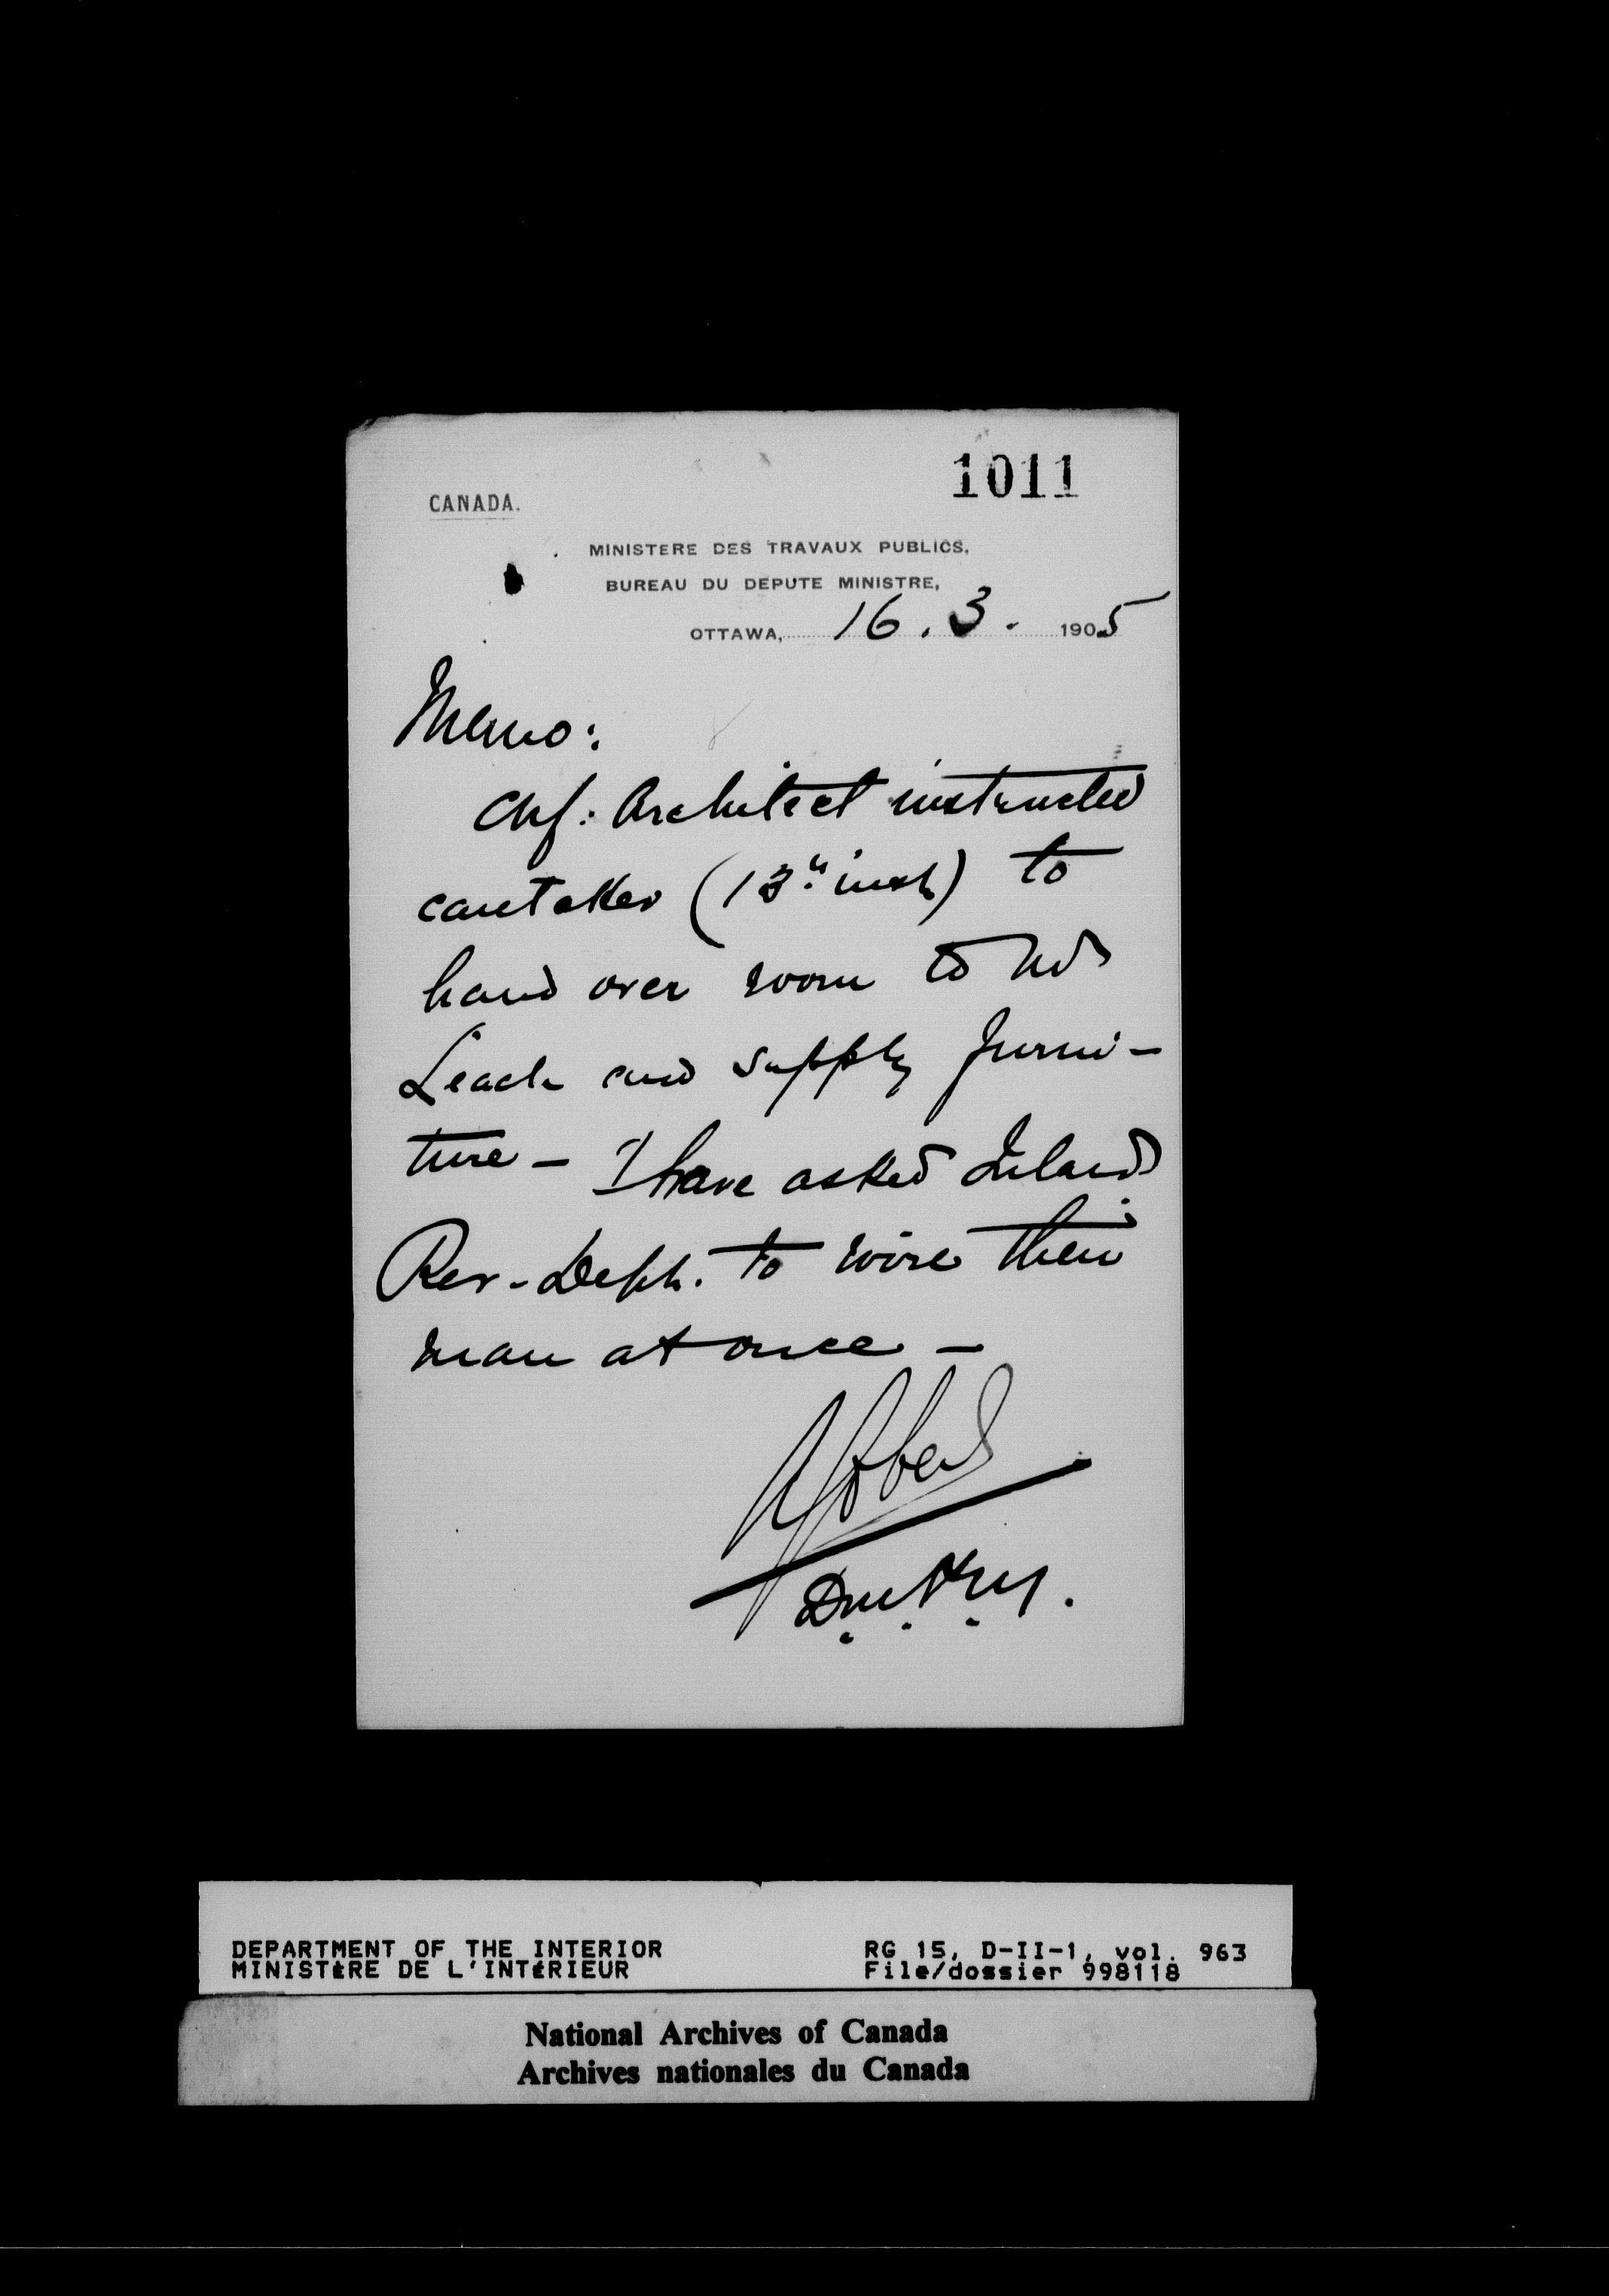 1011
CANADA.
MINISTERE DES TRAVAUX PUBLICS,
BUREAU DU DEPUTE MINISTRE,
OTTAWA, 16.3. 1905
Memo:
Chf: Architect instructed
caretaker (13th inst) to
hand over room to
Leach and supply furni-
ture – I have asked Inland
Rev-Dept. to wire their
man at once –
D.M.P.W.
DEPARTMENT OF THE INTERIOR
MINISTÈRE DE L'INTÉRIEUR
RG 15, D-II-1, vol. 963
File/dossier 998118
National Archives of Canada
Archives nationales du Canada